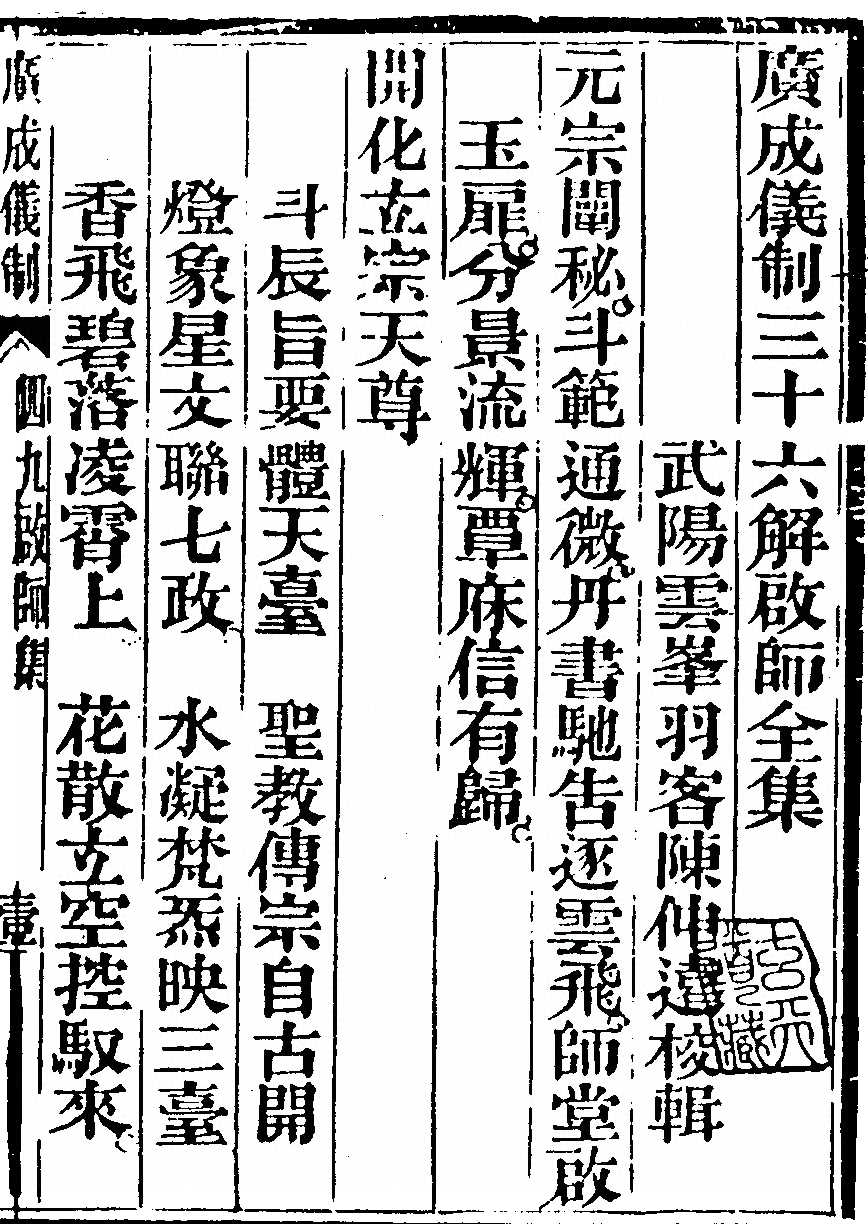 廣成儀制三十六解啟師全集
武陽雲峯羽客陳仲遠校輯
元宗闡秘斗範通微丹書馳告逐雲飛師堂啟
玉扉分景流輝覃庥信有歸
開化玄宗天尊
斗辰旨要體天臺 聖教傳宗自古開
燈象星文聯七政 水凝梵炁映三臺
香飛碧落凌霄上 花散玄空控馭來
廣成儀制 四九啟師集 壹